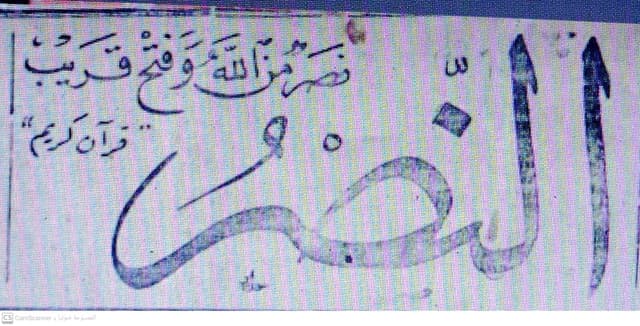 نَصْرٌ مِّنَ ٱللَّهِ وَفَتْحٌ قَرِيبٌ
"قرآن كريم"
النَّصْرُ
CS CamScanner